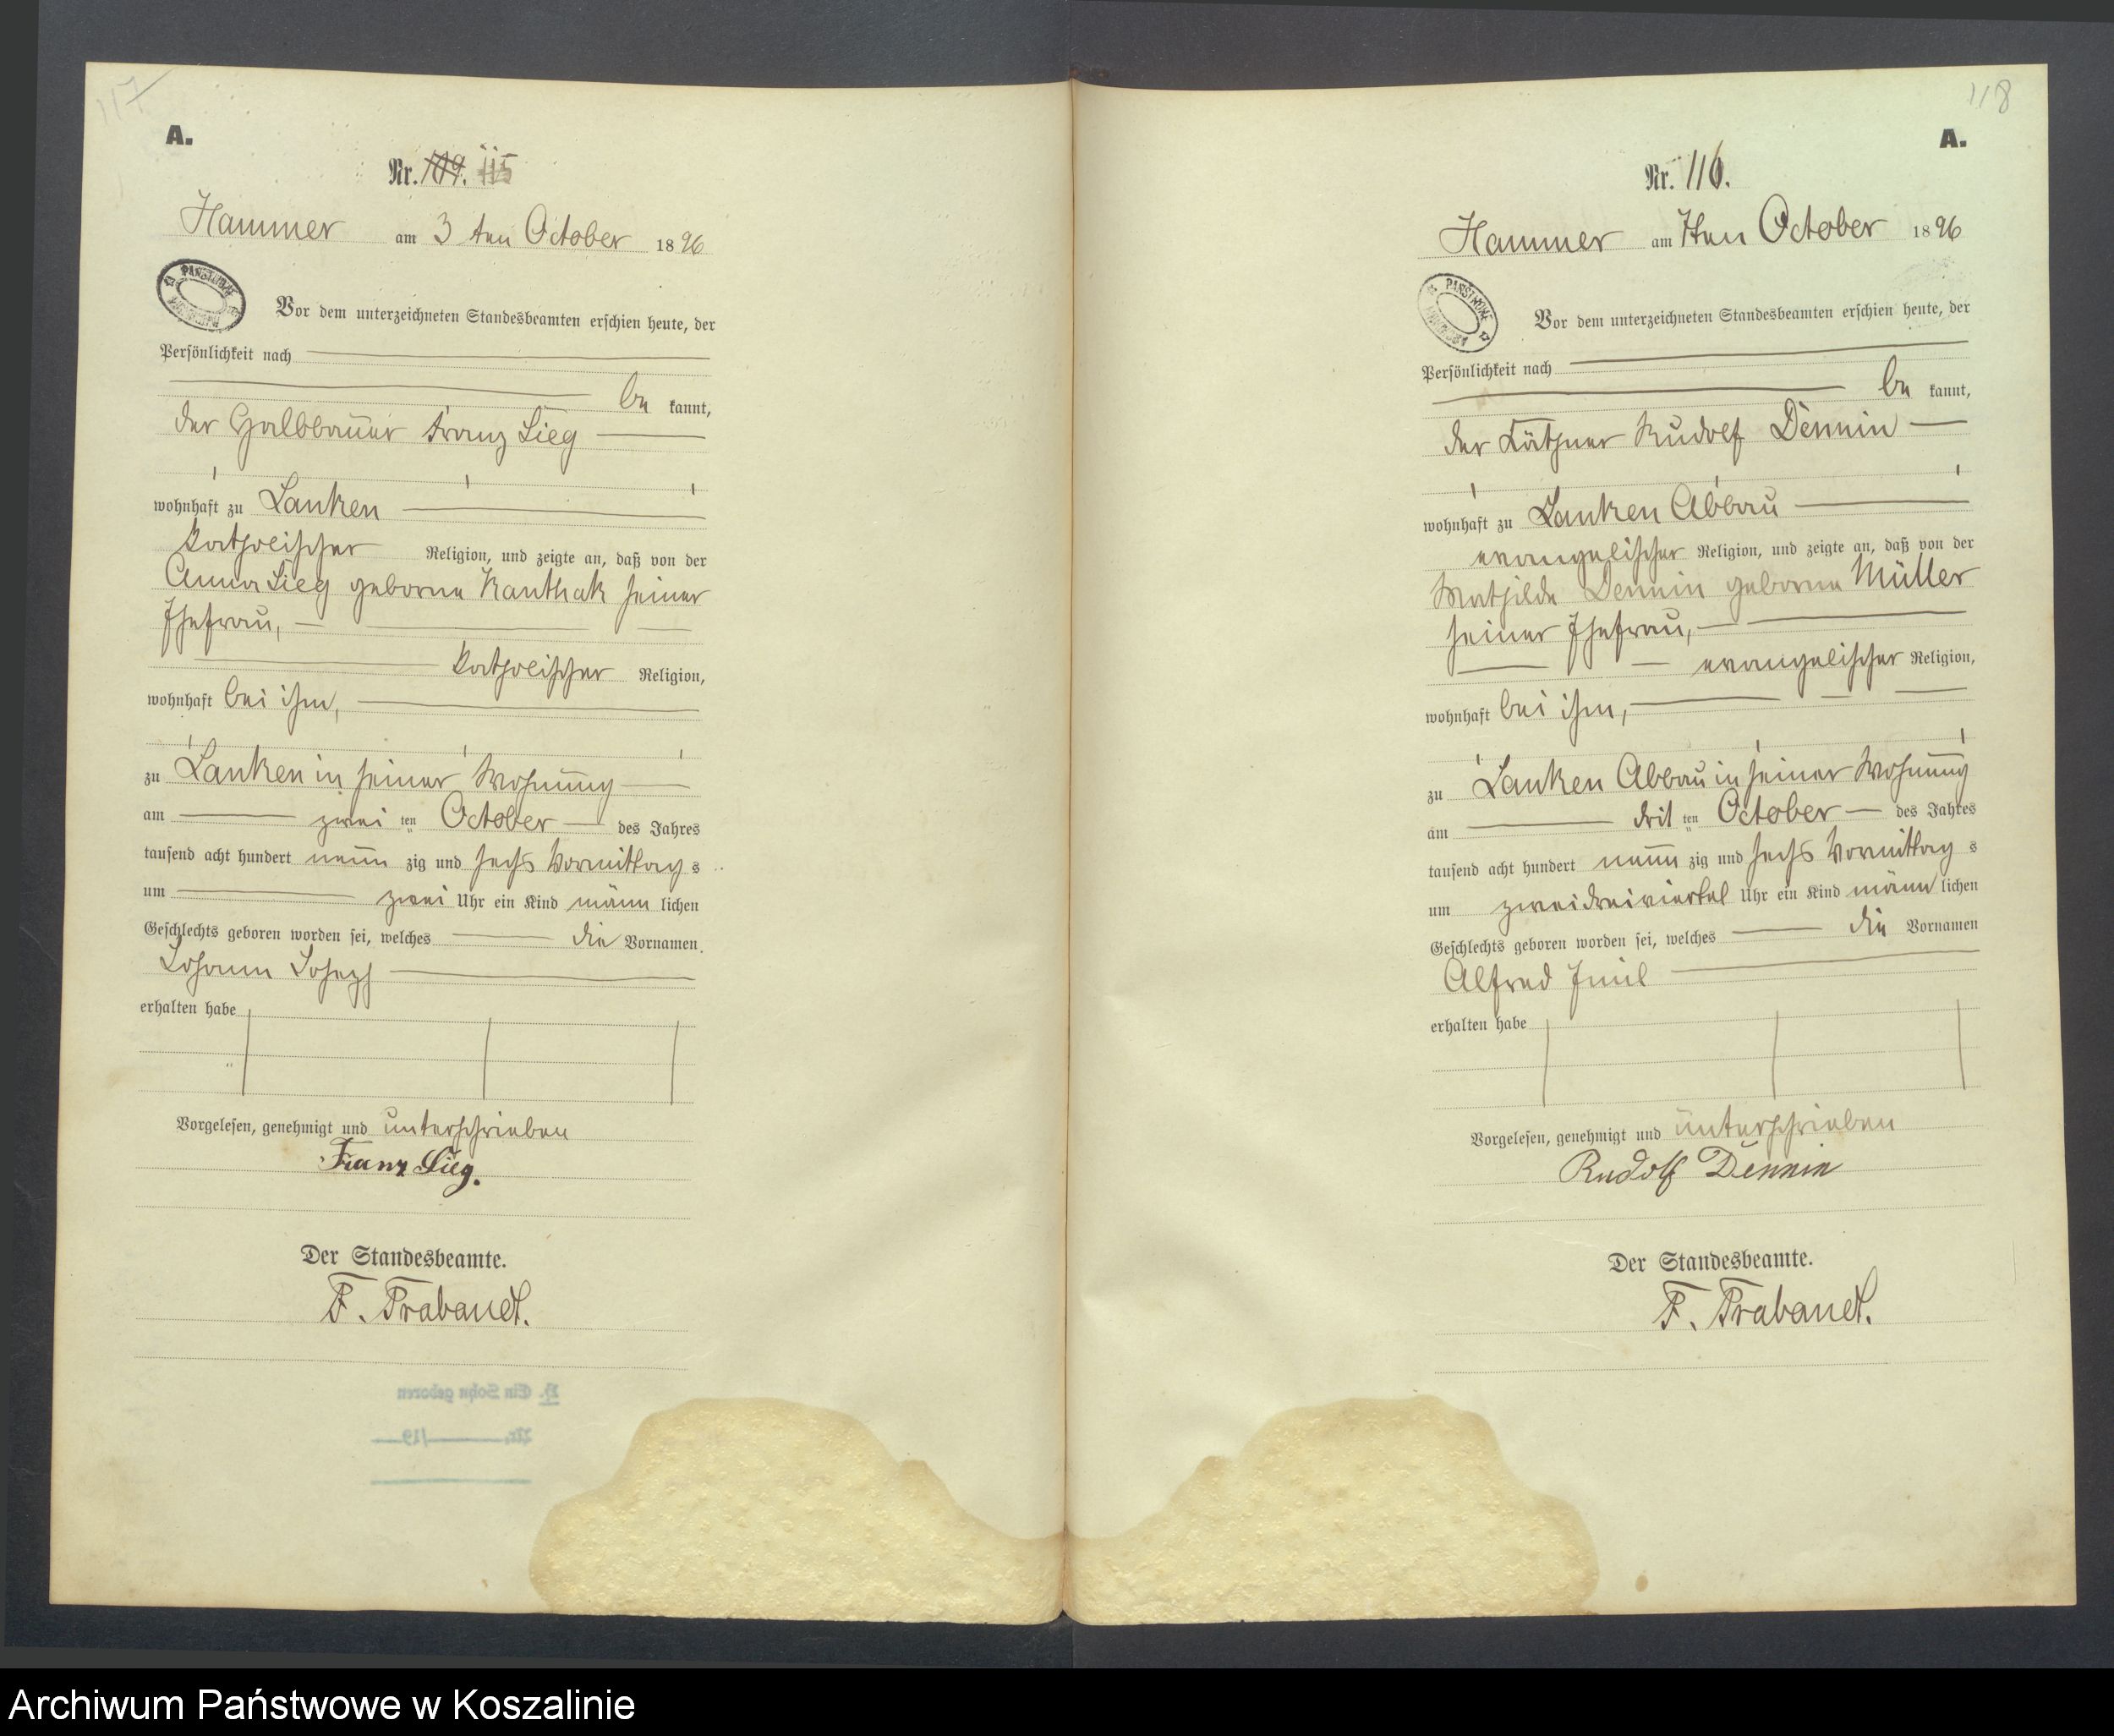 117
A.
Nr. 109. 115
Hammer am 3 ten October 1896
Vor dem unterzeichneten Standesbeamten erschien heute, der
Persönlichkeit nach
be kannt,
der Halbbauer Franz Lieg
wohnhaft zu Lanken
katholischer Religion, und zeigte an, daß von der
Anna Lieg geborne Kanthak seiner
Ehefrau,
katholischer Religion,
wohnhaft bei ihm,
zu Lanken in seiner Wohnung
am zwei ten October des Jahres
tausend acht hundert neun zig und sechs Vormittag s
um zwei Uhr ein Kind männ lichen
Geschlechts geboren worden sei, welches die Vornamen
Johann Joseph
erhalten habe
Vorgelesen, genehmigt und unterschrieben
Franz Lieg.
Der Standesbeamte.
F. Trabandt.
H. Ein Sohn geboren
Nr. /19
118
A.
Nr. 116.
Hammer am 7ten October 1896
PAŃSTWOWE
Vor dem unterzeichneten Standesbeamten erschien heute, der
Persönlichkeit nach
be kannt,
der Käthner Rudolf Dennin
wohnhaft zu Lanken Abbau
evangelischer Religion, und zeigte an, daß von der
Mathilde Dennin geborne Müller
seiner Ehefrau,
evangelischer Religion,
wohnhaft bei ihm,
zu Lanken Abbau in seiner Wohnung
am drit ten October des Jahres
tausend acht hundert neun zig und sechs Vormittag s
um zweidreiviertel Uhr ein Kind männ lichen
Geschlechts geboren worden sei, welches die Vornamen
Alfred Emil
erhalten habe
Vorgelesen, genehmigt und unterschrieben
Rudolf Dennin
Der Standesbeamte.
F. Trabandt.
Archiwum Państwowe w Koszalinie